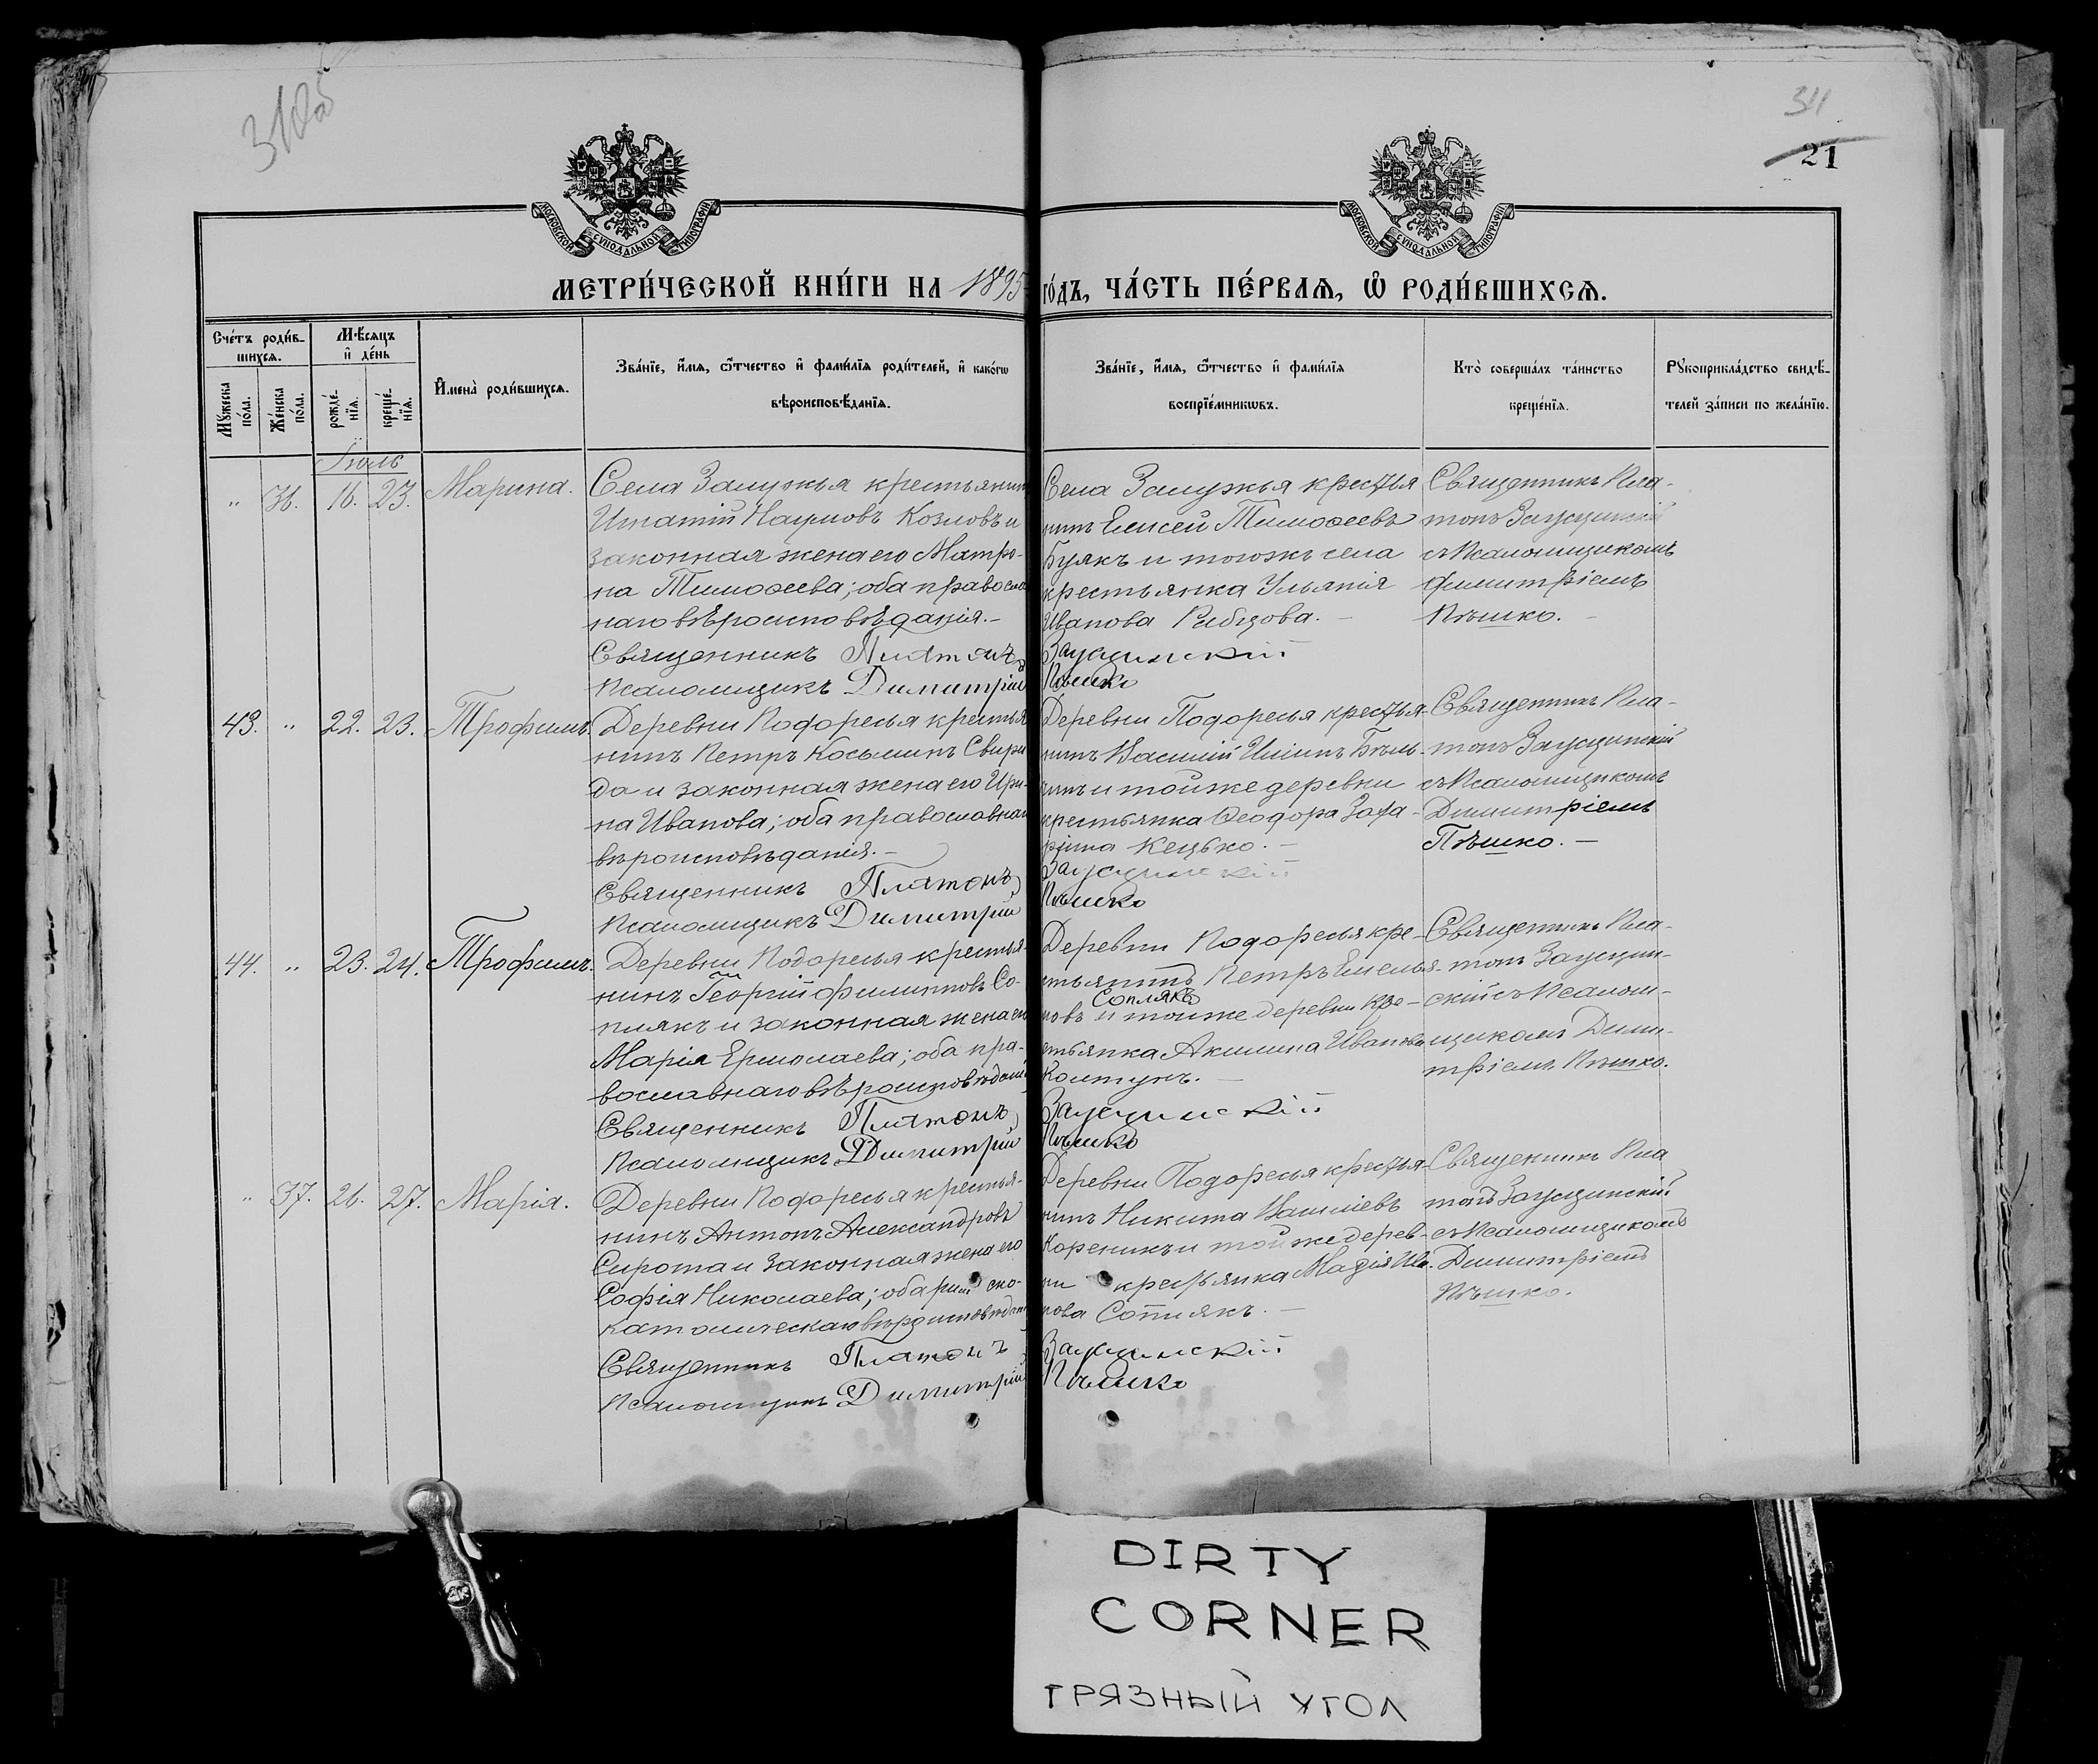 310об
311
21
МОСКОВСКОЙ СѴНОДАЛЬНОЙ ТИПОГРАФІИ
МОСКОВСКОЙ СѴНОДАЛЬНОЙ ТИПОГРАФІИ
МЕТРИ́ЧЕСКОЙ КНИ́ГИ НА 1895 го́дъ, ЧА́СТЬ ПЕ́РВАѦ, Ѡ҆ РОДИ́ВШИХСѦ.
Сче́тъ роди́в-
шихсѧ.
Мꙋ́жеска по́ла.
Же́нска по́ла.
Мѣ́сѧцъ
и҆ де́нь
рожде́-
нїѧ.
креще́-
нїѧ.
И҆мена̀ роди́вшихсѧ.
Зва́нїе, и҆́мѧ, ѻ҆́тчество и҆ фами́лїѧ роди́телей, и҆ како́гѡ
вѣроисповѣ́данїѧ.
Зва́нїе, и҆́мѧ, ѻ҆́тчество и҆ фами́лїѧ
воспрїе́мникѡвъ.
Кто̀ соверша́лъ та́инство
креще́нїѧ.
Рꙋкоприкла́дство свидѣ́-
телей за́писи по жела́нїю.
Іюль
" 36. 16. 23. Марина.
Села Залужья крестьянинъ
Игнатій Наумовъ Козловъ и
законная жена его Матро-
на Тимоѳеева; оба православ
наго вѣроисповѣданія.-
Священникъ Платонъ
Псаломщикъ Димитрій
Села Залужья крестья
нинъ Елисей Тимоѳеевъ
Буякъ и тогожъ села
крестьянка Ульянія
Иванова Рабцова. -
Заусцинскій
Пѣшко
Священникъ Пла-
тонъ Заусцинскій
съ Псаломщикомъ
Димитріемъ
Пѣшко. -
43. " 22. 23. Трофимъ.
Деревни Подоресья крестья
нинъ Петръ Косьминъ Свири
да и законная жена его Ири-
на Иванова; оба православнаго
вѣроисповѣданія.-
Священникъ Платонъ
Псаломщикъ Димитрій
Деревни Подоресья крестья-
нинъ Василій Ильинъ Бѣль-
и тойже деревни
крестьянка Ѳеодора Заха-
ріина Кецько. -
Заусцинскій
Пѣшко
Священникъ Пла-
тонъ Заусцинскій
съ Псаломщикомъ
Димитріемъ
Пѣшко. -
44. " 23. 24. Трофимъ.
Деревни Подоресья крестья-
нинъ Георгій Филипповъ Со-
плякъ и законная жена его
Марія Ермолаева; оба пра-
вославнаго вѣроисповѣданія
Священникъ Платонъ
Псаломщикъ Димитрій
Деревни Подоресья кре-
стьянинъ Петръ Емелья-
новъ Соплякъ и тойже деревни кре-
стьянка Акилина Иванова
Колтунъ. -
Заусцинскій
Пѣшко
Священникъ Пла-
тонъ Заусцин-
скій съ Псалом-
щикомъ Дими-
тріемъ Пѣшко.
" 37. 26. 27. Марія.
Деревни Подоресья крестья-
нинъ Антонъ Александровъ
Сирота и законная жена его
Софія Николаева; оба римско-
католическаго вѣроисповѣдан
Священникъ Платонъ
Псаломщикъ Димитрій
Деревни Подоресья крестья-
нинъ Никита Васильевъ
Кореникъ и тойже дерев-
ни крестьянка Марія Ива-
нова Соплякъ. -
Заусцинскій
Пѣшко
Священникъ Пла
тонъ Заусцинскій
съ Псаломщикомъ
Димитріемъ
Пѣшко.
DIRTY
CORNER
ГРЯЗНЫЙ УГОЛ